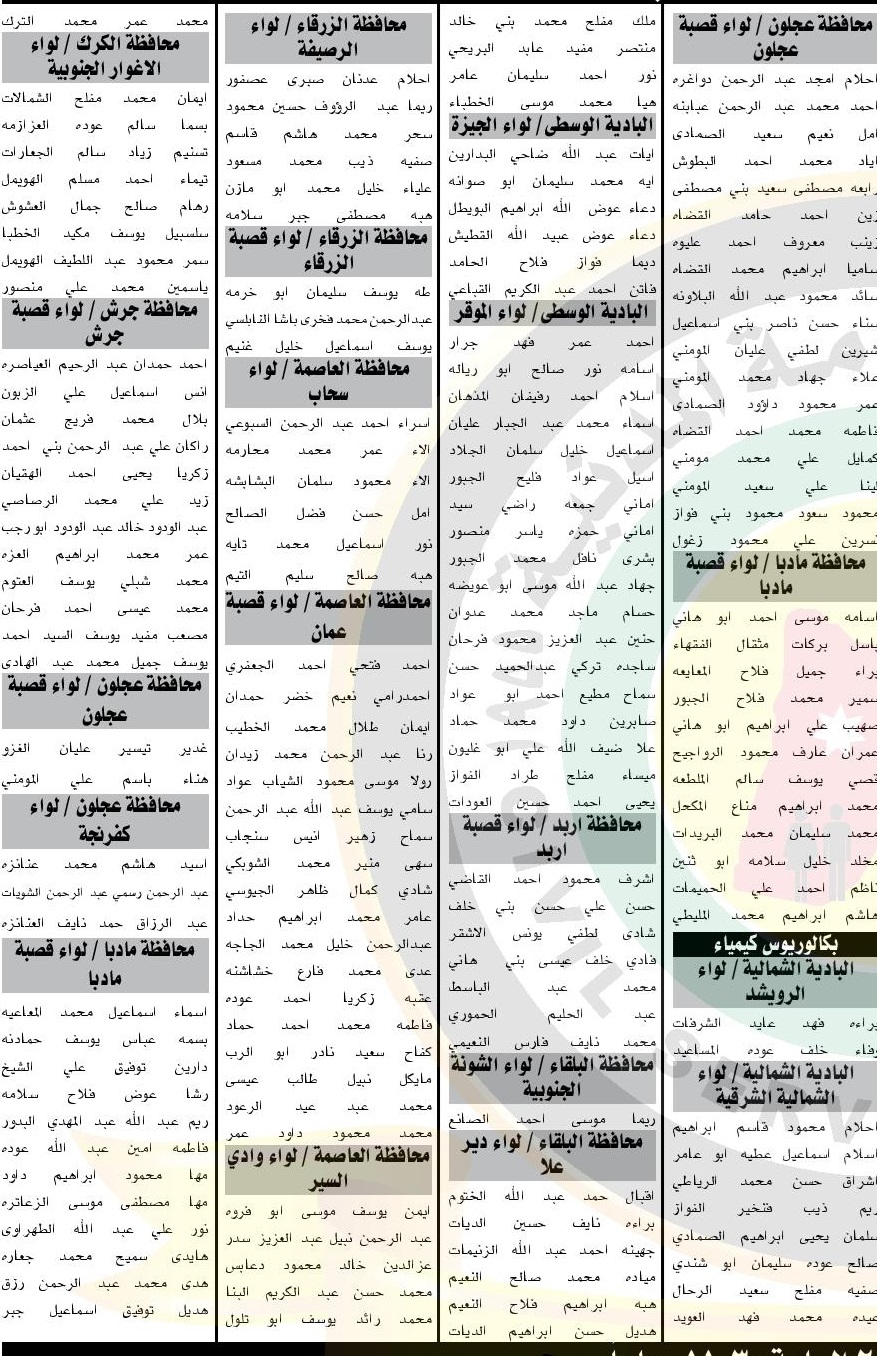 محافظة عجلون / لواء قصبة
عجلون
احلام امجد عبد الرحمن دواغره
احمد محمد عبد الرحمن عبابنه
امل نعيم سعيد الصمادى
اياد محمد احمد البطوش
رابعه مصطفى سعيد بني مصطفى
زين احمد حامد القضاه
زينب معروف احمد عليوه
ساميا ابراهيم محمد القضاه
سائد محمود عبد الله البلاونه
سناء حسن ناصر بني اسماعيل
شيرين لطفي عليان المومني
علاء جهاد محمد المومني
عمر محمود داؤود الصمادى
فاطمه محمد احمد القضاه
كمايل علي محمد مومني
لينا علي سعيد المومني
محمود سعود محمود بني فواز
نسرين علي محمود زغول
محافظة مادبا / لواء قصبة
مادبا
اسامه موسى احمد ابو هاني
باسل بركات مثقال الفقهاء
براء جميل فلاح المعايعه
سمير محمد فلاح الجبور
صهيب علي ابراهيم ابو هاني
عمران عارف محمود الرواجيح
قصي يوسف سالم الملطعه
محمد ابراهيم مناع المكحل
محمد سليمان محمد البريدات
مخلد خليل سلامه ابو ثنين
ناظم احمد علي الحميمات
هاشم ابراهيم محمد المليطي
بكالوريوس كيمياء
البادية الشمالية / لواء
الرويشد
براءه فهد عايد الشرفات
وفاء خلف عوده المساعيد
البادية الشمالية / لواء
الشمالية الشرقية
احلام محمود قاسم ابراهيم
اسلام اسماعيل عطيه ابو عامر
اشراق حسن محمد الرياطي
ريم ذيب فتخير الفواز
سلمان يحيى ابراهيم الصمادي
صالح عوده سليمان ابو شندي
صفيه مفلح سعيد الرحال
عيده محمد فهد العويد
ملك مفلح محمد بني خالد
منتصر مفيد عابد البريحي
نور احمد سليمان عامر
هيا محمد موسى الخطباء
البادية الوسطى/ لواء الجيزة
ايات عبد الله ضاحي البدارين
ايه محمد سليمان ابو صوانه
دعاء عوض الله ابراهيم البويطل
دعاء عوض عبيد الله القطيش
ديما فواز فلاح الحامد
فاتن احمد عبد الكريم القباعي
البادية الوسطى/ لواء الموقر
احمد عمر فهد جرار
اسامه نور صالح ابو رياله
اسلام احمد رفيفان المذهان
اسماء محمد عبد الجبار عليان
اسماعيل خليل سلمان الجلاد
اسيل عواد فليح الجبور
اماني جمعه راضي سيد
اماني حمزه ياسر منصور
بشرى نافل محمد الجبور
جهاد عبد الله موسى ابو عويضه
حسام ماجد محمد عدوان
حنين عبد العزيز محمود فرحان
ساجده تركي عبدالحميد حسن
سماح مطيع احمد ابو عواد
صابرين داود محمد حماد
علا ضيف الله علي ابو غليون
ميساء مفلح طراد الفواز
يحيى احمد حسين العودات
محافظة اربد / لواء قصبة
اربد
اشرف محمود احمد القاضي
حسن علي حسن بني خلف
شادى لطفي يونس الاشقر
فادي خلف عيسى بني هاني
محمد عبد الباسط
عبد الحليم الحموري
محمد نايف فارس النعيمي
محافظة البلقاء / لواء الشونة
الجنوبية
ريما موسى احمد الصانع
محافظة البلقاء / لواء دير
علا
اقبال حمد عبد الله الختوم
براءه نايف حسين الديات
جهينه احمد عبد الله الزنيمات
مياده محمد صالح النعيم
هبه ابراهيم فلاح النعيم
هديل حسن ابراهيم الديات
محافظة الزرقاء / لواء
الرصيفة
احلام عدنان صبرى عصفور
ريما عبد الرؤوف حسين محمود
سحر محمد هاشم قاسم
صفيه ذيب محمد مسعود
علياء خليل محمد ابو مازن
هبه مصطفى جبر سلامه
محافظة الزرقاء / لواء قصبة
الزرقاء
طه يوسف سليمان ابو خرمه
عبدالرحمن محمد فخرى باشا النابلسي
يوسف اسماعيل خليل غنيم
محافظة العاصمة / لواء
سحاب
اسراء احمد عبد الرحمن السبوعي
الاء عمر محمد محارمه
الاء محمود سلمان البشابشه
امل حسن فضل الصالح
نور اسماعيل محمد تايه
هبه صالح سليم التيم
محافظة العاصمة / لواء قصبة
عمان
احمد فتحي احمد الجعفري
احمدرامي نعيم خضر حمدان
ايمان طلال محمد الخطيب
رنا عبد الرحمن محمد زيدان
رولا موسى محمود الشياب عواد
سامي يوسف عبد الله عبد الرحمن
سماح زهير انيس سنجاب
سهى منير محمد الشوبكي
شادي كمال ظاهر الجيوسي
عامر محمد ابراهيم حداد
عبدالرحمن خليل محمد الجاجه
عدى محمد فارع خشاشنه
عقبه زكريا احمد عوده
فاطمه محمد احمد حماد
كفاح سعيد نادر ابو الرب
مايكل نبيل طالب عيسى
محمد عبد عيد الرعود
محمد محمود داود عمر
محافظة العاصمة / لواء وادي
السير
ايمن يوسف موسى ابو فروه
عبد الرحمن نبيل عبد العزيز سدر
عزالدين خالد محمود دعابس
محمد حسن عبد الكريم البنا
محمد رائد يوسف ابو تلول
محمد عمر محمد الترك
محافظة الكرك / لواء
الاغوار الجنوبية
ايمان محمد مفلح الشمالات
بسما سالم عوده العزازمه
تسنيم زياد سالم الجعارات
تيماء احمد مسلم الهويمل
رهام صالح جمال العشوش
سلسبيل يوسف مكيد الخطبا
سمر محمود عبد اللطيف الهويمل
ياسمين محمد علي منصور
محافظة جرش / لواء قصبة
جرش
احمد حمدان عبد الرحيم العياصره
انس اسماعيل علي الزبون
بلال محمد فريح عثمان
راكان علي عبد الرحمن بني احمد
زكريا يحيى احمد الهقيان
زيد علي محمد الرصاصي
عبد الودود خالد عبد الودود ابو رجب
عمر محمد ابراهيم العزه
محمد شبلي يوسف العتوم
محمد عيسى احمد فرحان
مصعب مفيد يوسف السيد احمد
يوسف جميل محمد عبد الهادى
محافظة عجلون / لواء قصبة
عجلون
غدير تيسير عليان الغزو
هناء باسم علي المومني
محافظة عجلون / لواء
كفرنجة
اسيد هاشم محمد عنانزه
عبد الرحمن رسمي عبد الرحمن الشويات
عبد الرزاق حمد نايف العنانزه
محافظة مادبا / لواء قصبة
مادبا
اسماء اسماعيل محمد المعاعيه
بسمه عباس يوسف حمادنه
دارين توفيق علي الشيخ
رشا عوض فلاح سلامه
ريم عبد الله عبد المهدي البدور
فاطمه امين عبد الله عوده
مها محمود ابراهيم داود
مها مصطفى موسى الزعاتره
نور علي عبد الله الطهراوى
هايدى سميح محمد جعاره
هدى محمد عبد الرحمن رزق
هديل توفيق اسماعيل جبر